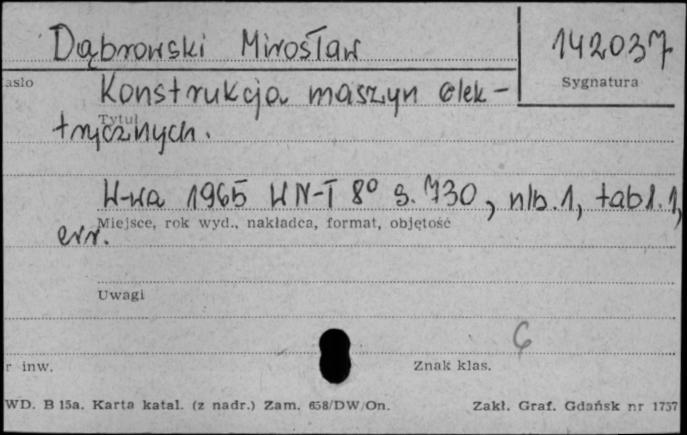 Dąbrowski Mirosław 142037
asło Sygnatura
Konstrukcja maszyn elek-
Tytuł
trycznych.
W-wa 1965 WN-T 8° s. 730, nlb. 1, tabl. 1,
Miejsce, rok wyd., nakładca, format, objętość
err.
Uwagi
r inw. Znak klas.
WD. B 15a. Karta katal. (z nadr.) Zam. 658/DW/On. Zakł. Graf. Gdańsk nr 1757